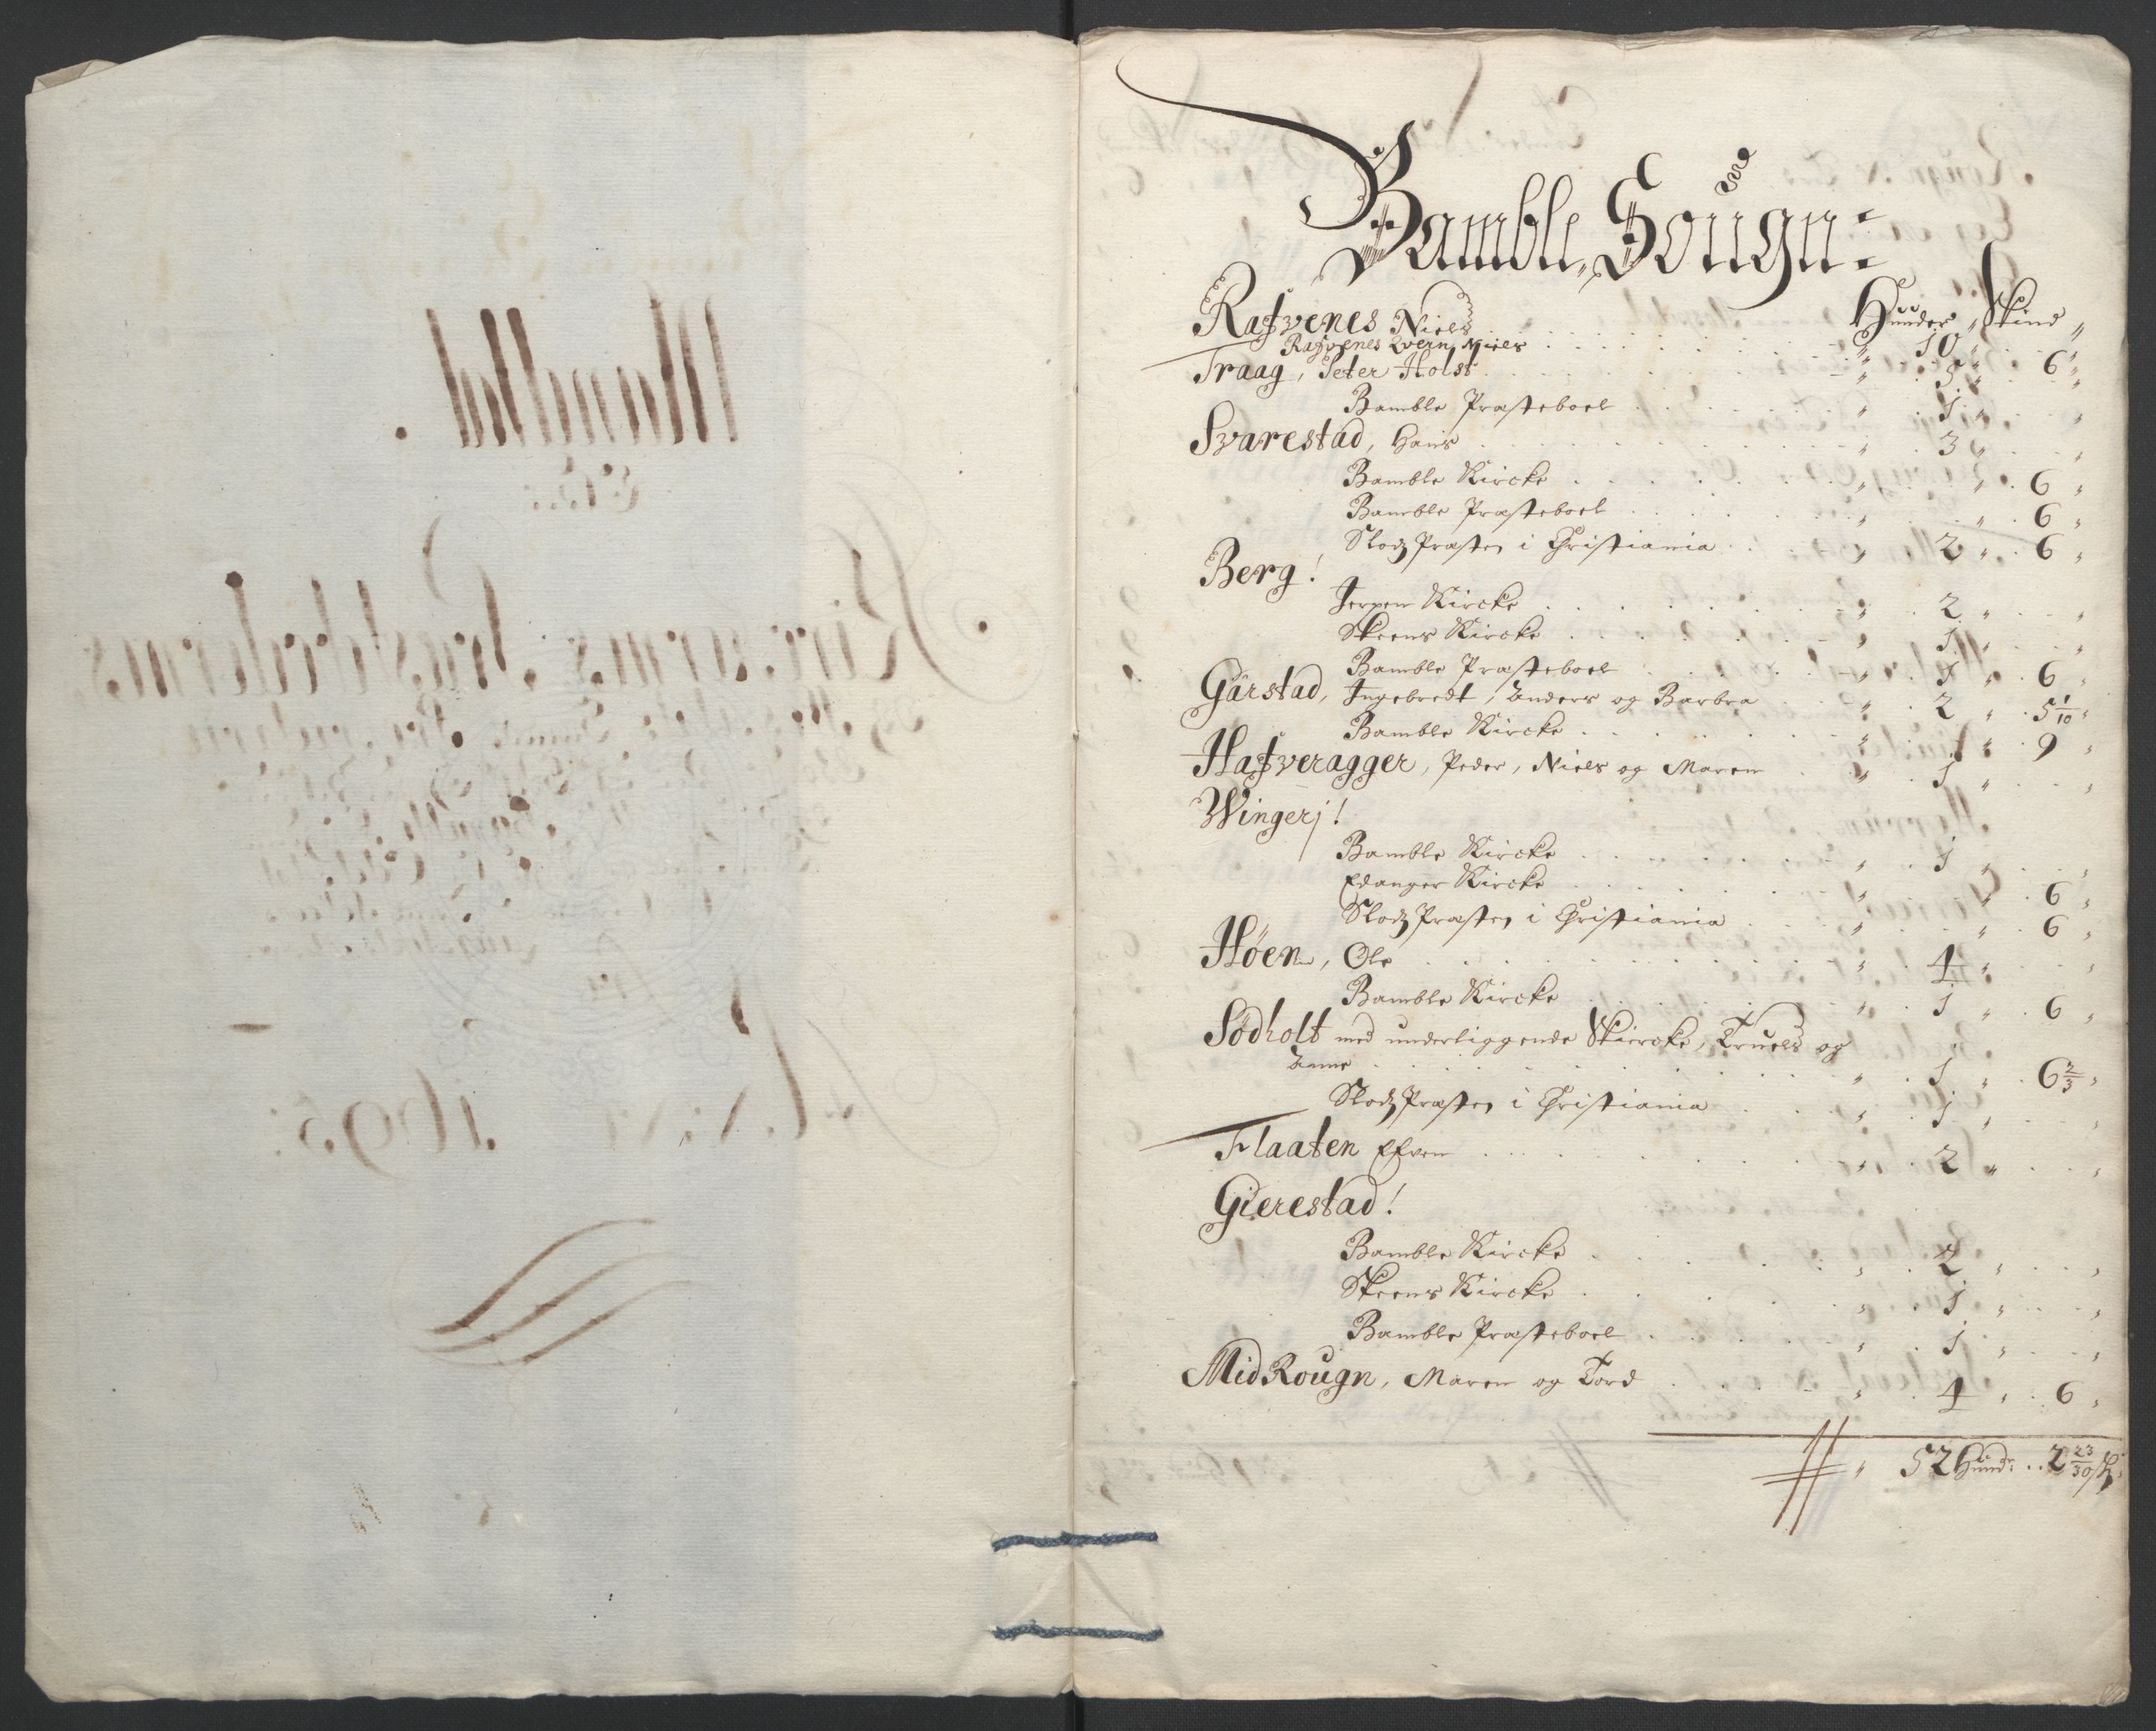 Bamble Sougn:
Hunder Skind
Rafvenes Niels 10
Rafvenes Qvern, Niels 6
Traag, Peter Holst 5
Bamble Præsteboel 1
Svarestad, Hans 3
Bamble Kircke 6
Bamble Præsteboel 6
Slodz Præsten i Christiania 2 6
Berg!
Jerpen Kircke 2
Skeens Kircke 1
Bamble Præsteboel 1 6
Garstad, Ingebredt, Anders og Barbra 2 5 1/10
Bamble Kircke 1 9
Hafveragger, Peder, Niels og Maren 1
Wingerj!
Bamble Kircke 1
Edanger Kircke 6
Slodz Præsten i Christiania 6
Høen, Ole 4
Bamble Kircke 1 6
Sødholt med underliggende Skiercke, Truels og
Anne 1 6 2/3
Slodz Præsten i Christiania 1
Flaaten Efven 2
Gierestad!
Bamble Kircke 2
Skeens Kircke 1
Bamble Præsteboel 1
MidRougn, Maren og Tord 4 6
52 Hund: 2 23/30 sk: